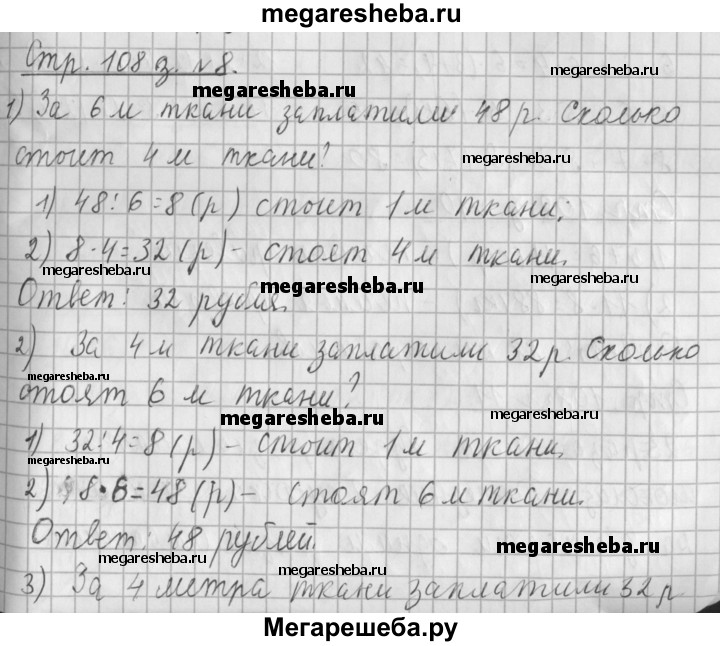 megaresheba.ru
Стр. 108 з. №8.
megaresheba.ru
megaresheba.ru
1) За 6 м ткани заплатили 48 р. Сколько
стоит 4 м ткани?
megaresheba.ru
1) 48:6=8 (р) стоит 1 м ткани;
2) 8·4=32 (р) - стоят 4 м ткани.
megaresheba.ru
megaresheba.ru
megaresheba.ru
Ответ: 32 рубля.
2) За 4 м ткани заплатили 32 р. Сколько
megaresheba.ru
стоят 6 м ткани?
megaresheba.ru
megaresheba.ru
1) 32:4=8 (р) - стоит 1 м ткани.
megaresheba.ru
2) 8·6=48 (р) - стоят 6 м ткани.
Ответ: 48 рублей.
megaresheba.ru
megaresheba.ru
3) За 4 метра ткани заплатили 32 р
Мегарешеба.ру